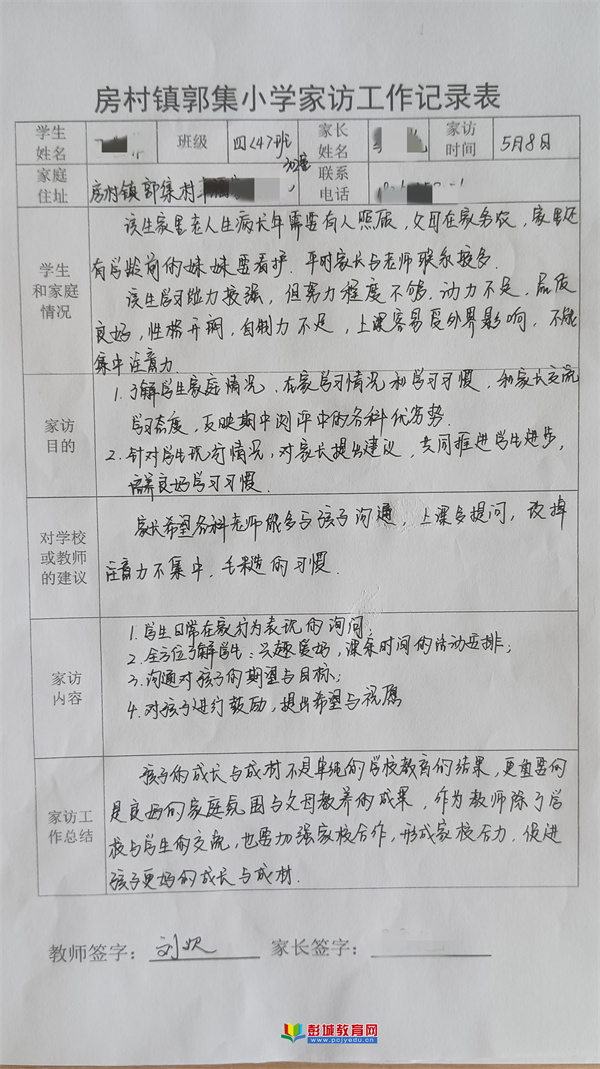 房村镇郭集小学家访工作记录表
学生姓名 班级 四<4>班 家长姓名 家访时间 5月8日
家庭住址 房村镇郭集村 联系电话
学生和家庭情况
该生家里老人生病长年需要有人照顾，父母在家务农，家里还
有学龄前的妹妹要看护。平时家长与老师联系较多。
该生学习能力较强，但努力程度不够，动力不足，品质
良好，性格开朗，自制力不足，上课容易受外界影响，不能
集中注意力
家访目的
1.了解学生家庭情况、在家学习情况和学习习惯，和家长交流
学习态度，反映期中测评中的各科优劣势.
2.针对学生现行情况，对家长提出建议，共同推进学生进步，
培养良好学习习惯.
对学校或教师的建议
家长希望各科老师能多与孩子沟通，上课多提问，改掉
注意力不集中，毛糙的习惯.
家访内容
1.学生日常在家行为表现的询问；
2.全方位了解学生：兴趣爱好，课余时间的活动安排；
3.沟通对孩子的期望与目标；
4.对孩子进行鼓励，提出希望与祝愿
家访工作总结
孩子的成长与成材不是单纯的学校教育的结果，更重要的
是良好的家庭氛围与父母教养的成果，作为教师除了学
校与学生的交流，也要加强家校合作，形成家校合力，促进
孩子更好的成长与成材.
教师签字：刘欢 家长签字：
彭城教育网
www.pcjyedu.cn